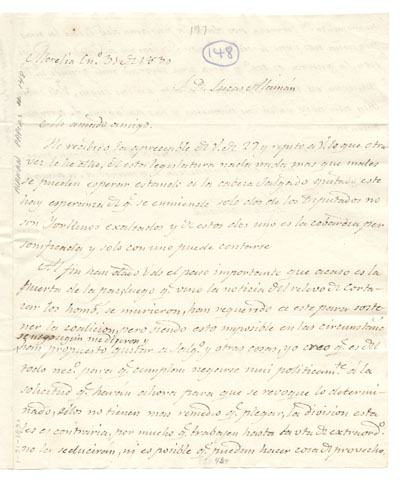 197
148
Morelia En.º 31 de 1830
S. D. Lucas Alamán
Mi amado amigo.
He recibido la apreciable de V. de 27 y repito a V. lo que otra
vez le he dicho, de esta legislatura nada nada mas que males
se pueden esperar estando a la cabeza Salgado, quitado este
hay esperanza de q.e se enmiende, solo dos de los Diputados no
son Yorkinos exaltados y de estos dos uno es la cobardia per
sonificada y solo con uno puede contarse
Al fin han dado Vds el paso importante que acaso es la
puerta de la paz, luego q.e vino la noticia del relevo de Corta
zar los homb.s se murieron, han requerido a este para soste
ner la coalicion, pero siendo esto imposible en las circunstancias
se negó segun me dijeron y
han propuesto quitar a Salg.o y otras cosas, yo creo q.e es del
todo nec.o para q.e cumplan negarse mui politicam.te a la
solicitud q.e harán ahora para que se revoque lo determi
nado, ellos no tienen mas remedio q.e plegar, la division esta
les es contraria, por mucho q.e trabajen hasta la vta. de extraord.s
no la seducirán, ni es posible q.e puedan hacer cosa de provecho,